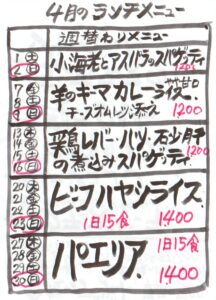 4月のランチメニュー
週替わりメニュー
1 土
2 日
小海老とアスパラのスパゲッティ
1200
7 金
8 土
9 日
羊のキーマカレー
チーズオムレツ添え 1200
13 木
14 金
15 土
16 日
鶏レバー・ハツ・砂肝
の煮込みスパゲッティ
1200
20 木
21 金
22 土
23 日
ビーフハヤシライス
1日15食 1400
27 木
28 金
29 土
30 日
パエリア 1日15食
1400